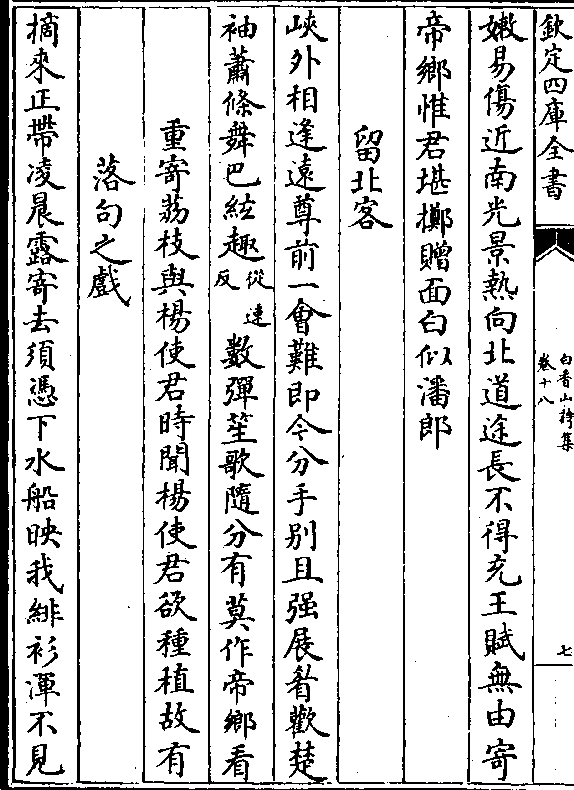 欽定四庫全書
白香山詩集
卷十八
七
嫩易傷近南光景熱向北道途長不得充王賦無由寄
帝鄉惟君堪擲贈面白似潘郎
留北客
峽外相逢遠尊前一會難即今分手別且强展眉歡楚
袖蕭條舞巴絃趣從速反數彈笙歌隨分有莫作帝鄉看
重寄荔枝與楊使君時聞楊使君欲種植故有
落句之戲
摘來正帶凌晨露寄去須憑下水船映我緋衫渾不見